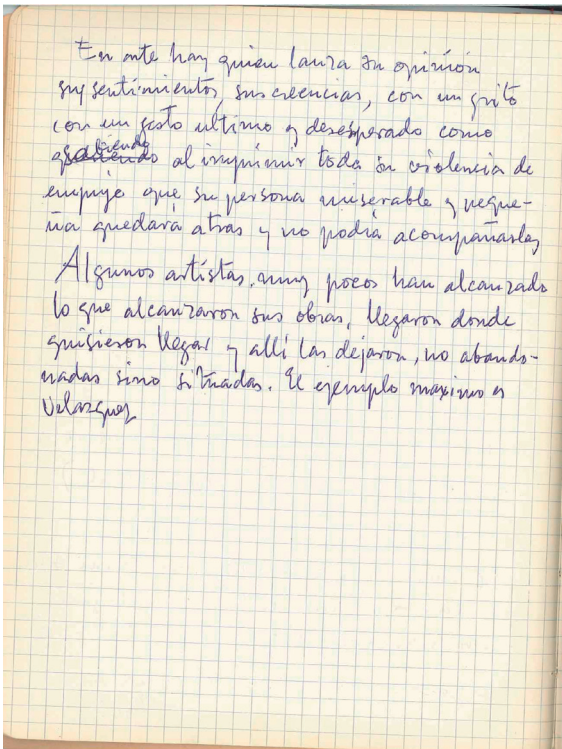 En arte hay quien lanza su opinión
sus sentimientos, sus creencias, con un grito
con un gesto ultimo y desesperado como
sabiendo al imprimir toda su violencia de
empuje que su persona miserable y peque-
ña quedará atras y no podrá acompañarlas
Algunos artistas, muy pocos han alcanzado
lo que alcanzaron sus obras, llegaron donde
quisieron llegar y allí las dejaron, no abando-
nadas sino situadas. El ejemplo maximo es
Velazquez